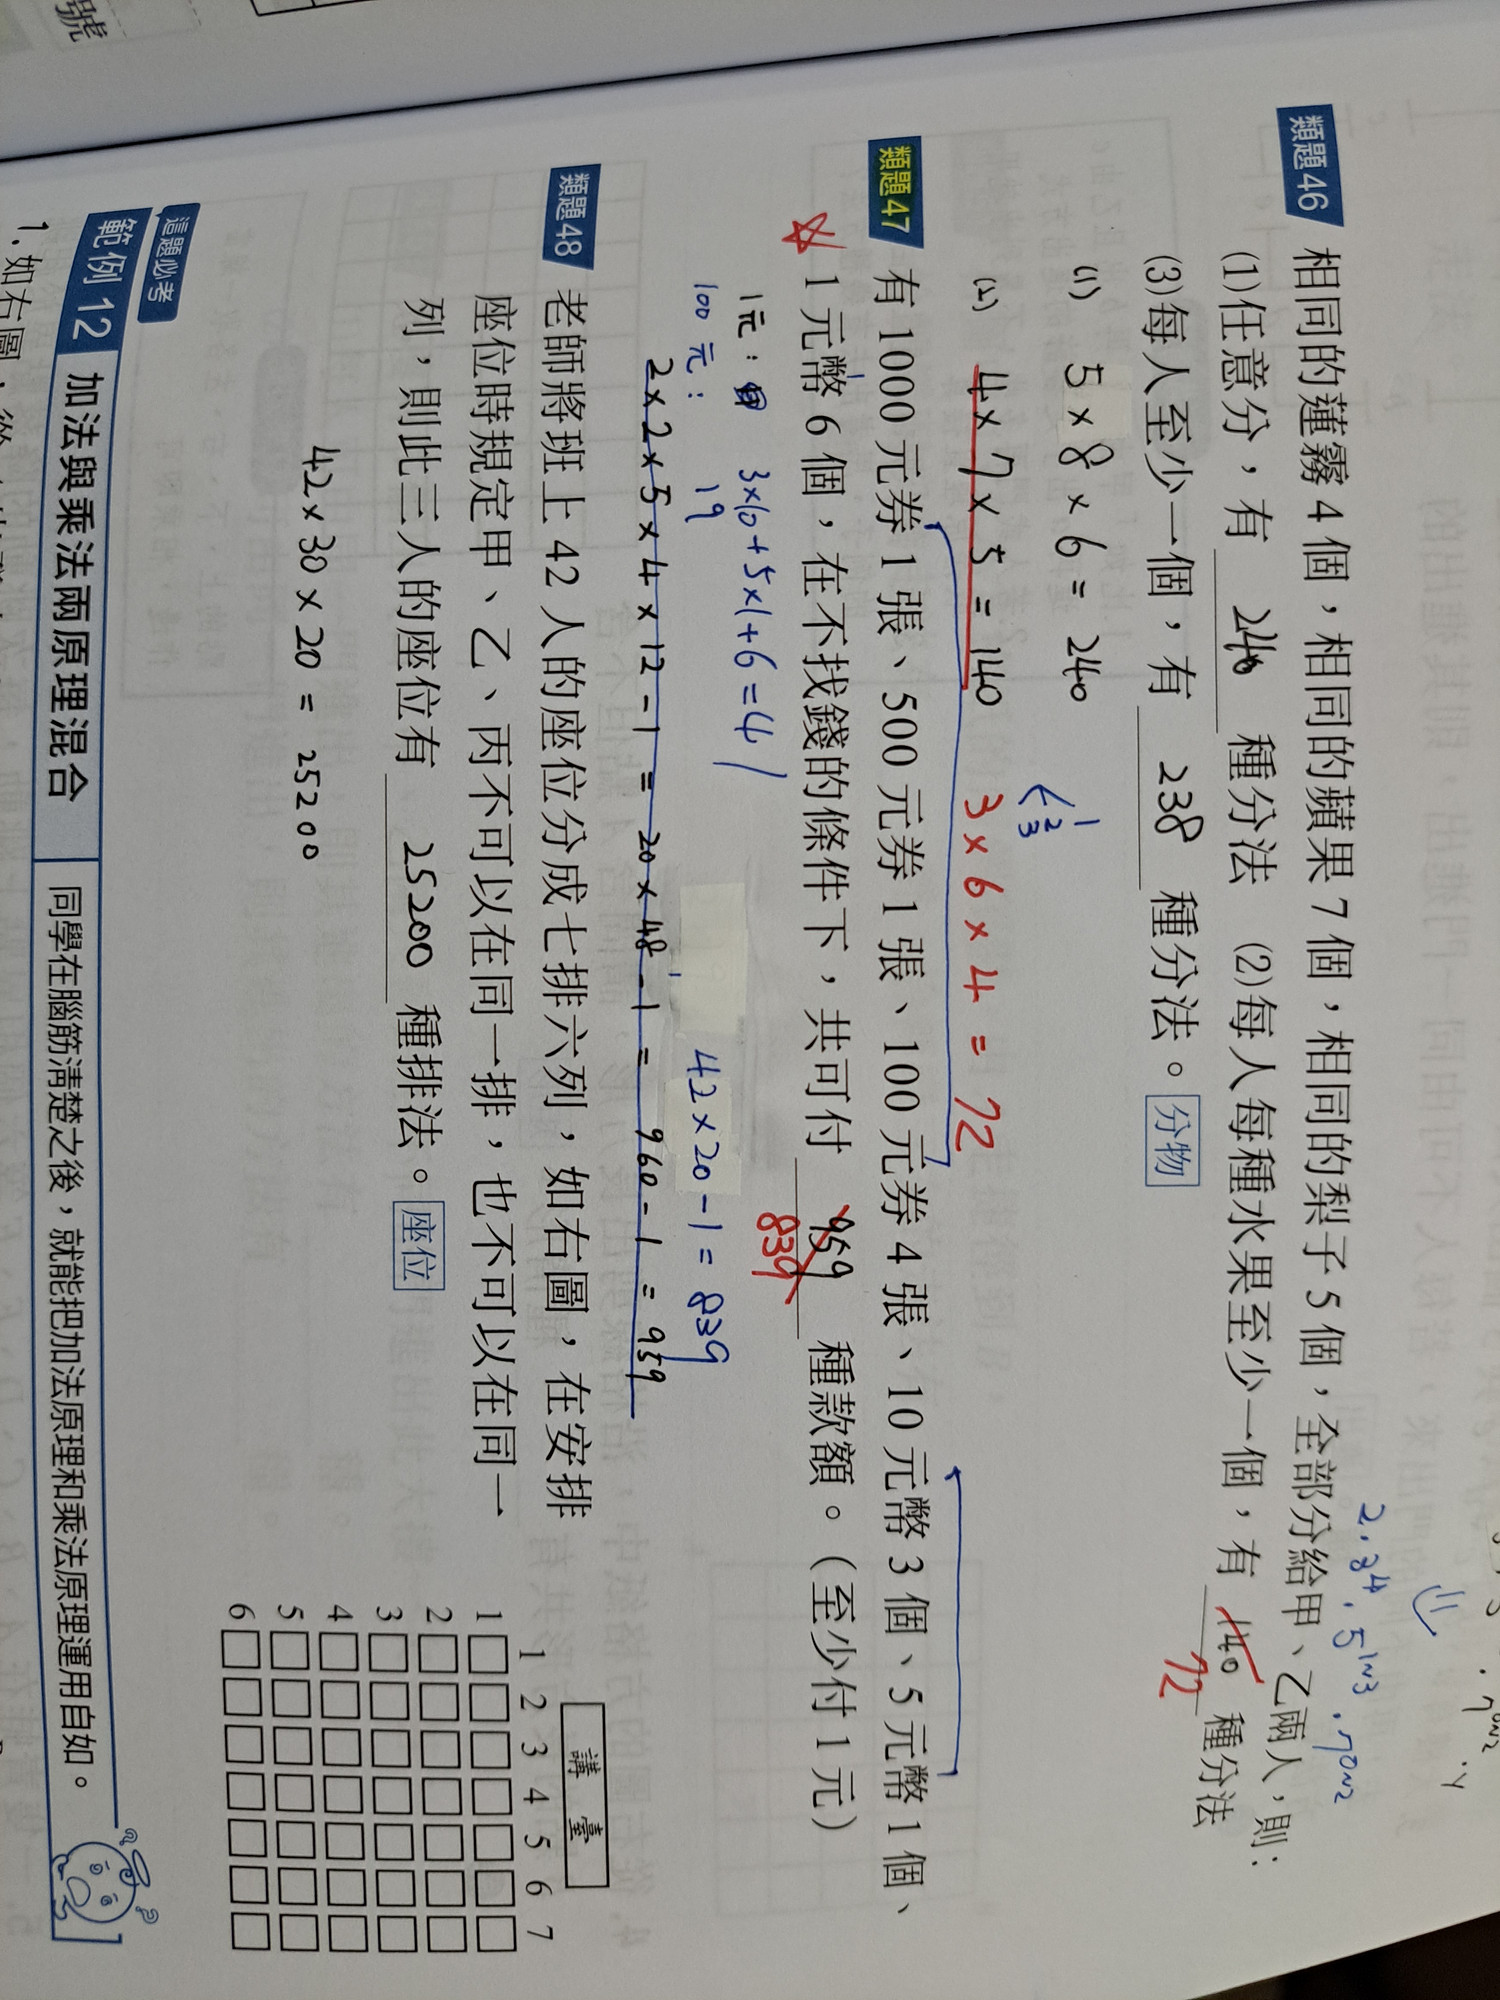 號
類題46 相同的蓮霧 4 個，相同的蘋果 7 個，相同的梨子 5 個，全部分給甲、乙兩人，則：
(1)任意分，有 240 種分法 (2)每人每種水果至少一個，有 140 72 種分法
(3)每人至少一個，有 238 種分法。 分物
(1) 5 × 8 × 6 = 240
(2) 4 × 7 × 5 = 140 3 × 6 × 4 = 72
類題47 有 1000 元券 1 張、500 元券 1 張、100 元券 4 張、10 元幣 3 個、5 元幣 1 個、
1 元幣 6 個，在不找錢的條件下，共可付 959 839 種款額。（至少付 1 元）
1元： 3×10+5×1+6=41
100元： 19 42×20-1=839
2×2×5×4×12-1 = 20×48-1 = 960-1 = 959
類題48 老師將班上 42 人的座位分成七排六列，如右圖，在安排
座位時規定甲、乙、丙不可以在同一排，也不可以在同一
列，則此三人的座位有 25200 種排法。 座位
42 × 30 × 20 = 25200
講 臺
1 2 3 4 5 6 7
1
2
3
4
5
6
這題必考
範例 12 加法與乘法兩原理混合 同學在腦筋清楚之後，就能把加法原理和乘法原理運用自如。
1. 如右圖，從